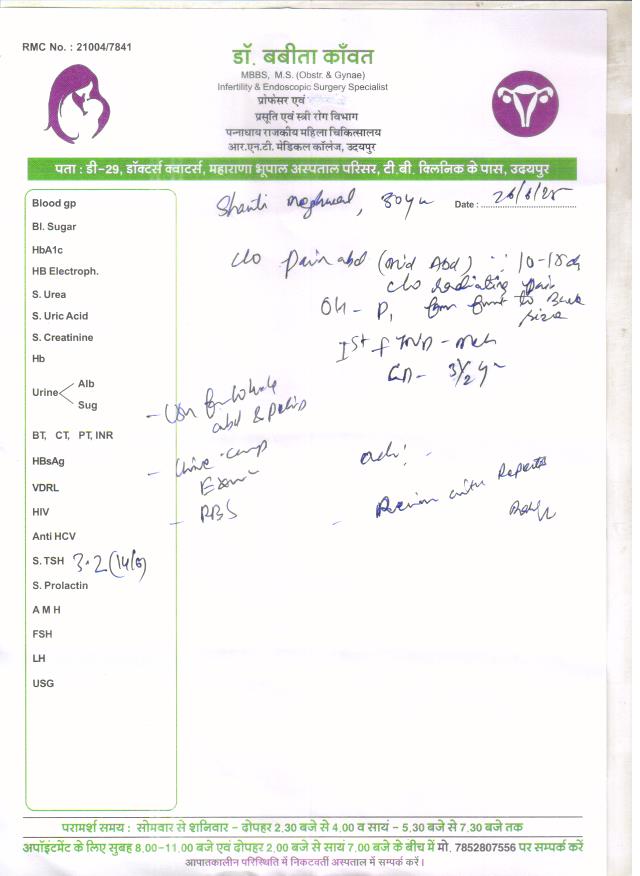 RMC No. : 21004/7841
डॉ. बबीता काँवत
MBBS, M.S. (Obstr. & Gynae)
Infertility & Endoscopic Surgery Specialist
प्रोफेसर एवं
प्रसूति एवं स्त्री रोग विभाग
पन्नाधाय राजकीय महिला चिकित्सालय
आर.एन.टी. मेडिकल कॉलेज, उदयपुर
पता : डी-29, डॉक्टर्स क्वाटर्स, महाराणा भूपाल अस्पताल परिसर, टी.बी. क्लिनिक के पास, उदयपुर
Shanti Meghwal, 30yr Date : 26/6/25
Blood gp
Bl. Sugar
HbA1c
HB Electroph.
S. Urea
S. Uric Acid
S. Creatinine
Hb
Urine
Alb
Sug
BT, CT, PT, INR
HBsAg
VDRL
HIV
Anti HCV
S. TSH 3.2 (14/6)
S. Prolactin
A M H
FSH
LH
USG
c/o pain abd (mid Abd)
c/o radiating pain
OH - P1 from front to Back
LD - 3½ yr
- USG for whole
abd & pelvis
- Urine - comp
Exam
- RBS
Adv:
- Review with Reports
परामर्श समय : सोमवार से शनिवार - दोपहर 2.30 बजे से 4.00 व सायं - 5.30 बजे से 7.30 बजे तक
अपॉइंटमेंट के लिए सुबह 8.00-11.00 बजे एवं दोपहर 2.00 बजे से सायं 7.00 बजे के बीच में मो. 7852807556 पर सम्पर्क करें
आपातकालीन परिस्थिति में निकटवर्ती अस्पताल में सम्पर्क करें।